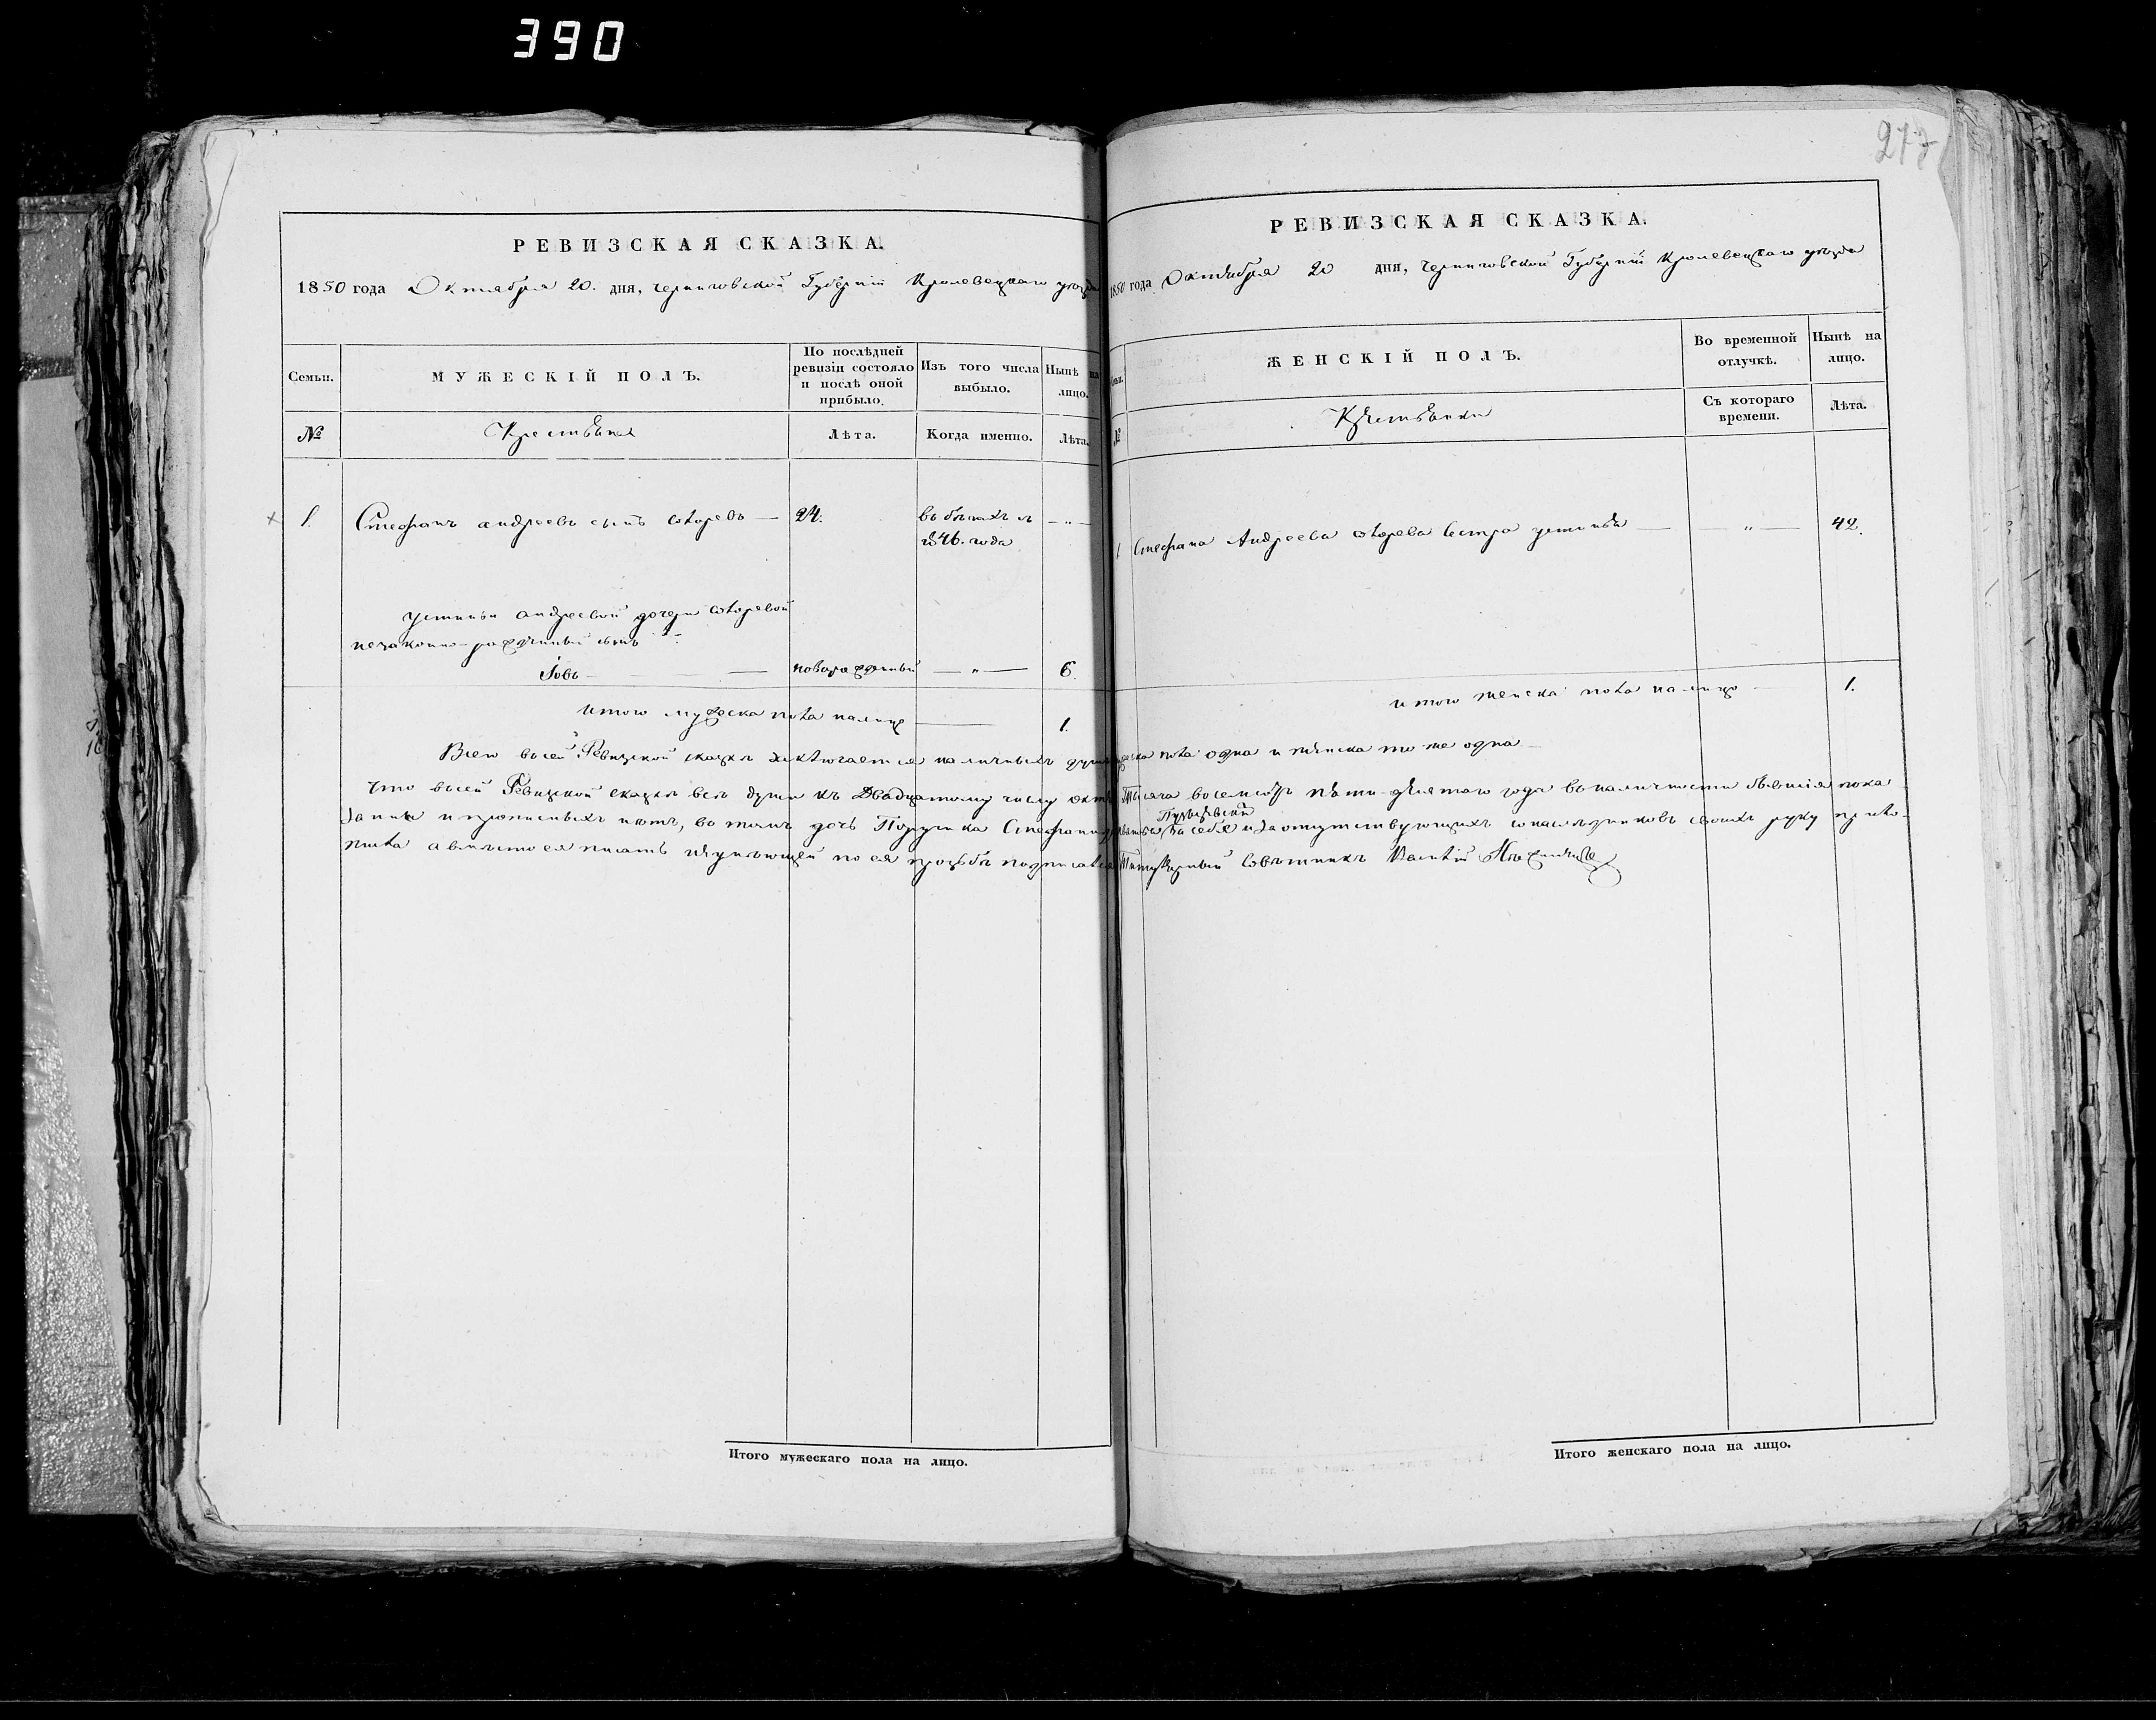 390
277
РЕВИЗСКАЯ СКАЗКА.
1850 года Октября 20. дня, Черниговской Губерніи Кролевецкаго уѣзда
Семьи.
МУЖЕСКІЙ ПОЛЪ.
По послѣдней ревизіи состояло и послѣ оной прибыло.
Изъ того числа выбыло.
Нынѣ на лицо.
№
Крестьяне
Лѣта.
Когда именно.
Лѣта.
1. Стефанъ андреевъ сынъ — 24. въ бѣгахъ съ — „ —
1846. года
устиньи андреевой дочери
незаконно-рожденный сынъ
Іовъ — новорожденный — „ — 6.
итого мужеска пола налице — 1.
РЕВИЗСКАЯ СКАЗКА.
1850 года Октября 20 дня, Черниговской Губерніи Кролевецкаго уѣзда
ЖЕНСКІЙ ПОЛЪ.
Во временной отлучкѣ.
Нынѣ на лицо.
№
Крестьянки
Съ котораго времени.
Лѣта.
1 Стефана Андреева сестра устинья — — „ — 42.
итого женска пола на лицо — 1.
Всего въ сей Ревизской сказкѣ заключается наличныхъ душъ мужеска пола одна и женска то же одна —
Что въ сей Ревизской сказкѣ всѣ души къ Двадцатому числу Тысяча восемсотъ пяти-десятаго года въ наличности бывшія пока-
заны и прописныхъ нѣтъ, въ томъ дочь Поручика за себя и за отсутствующихъ сонаслѣдниковъ своихъ руку прило-
жила а вмѣсто ея писать неумѣющей по ея прозьбѣ подписался Титулярный Совѣтникъ Василій
Итого мужескаго пола на лицо.
Итого женскаго пола на лицо.